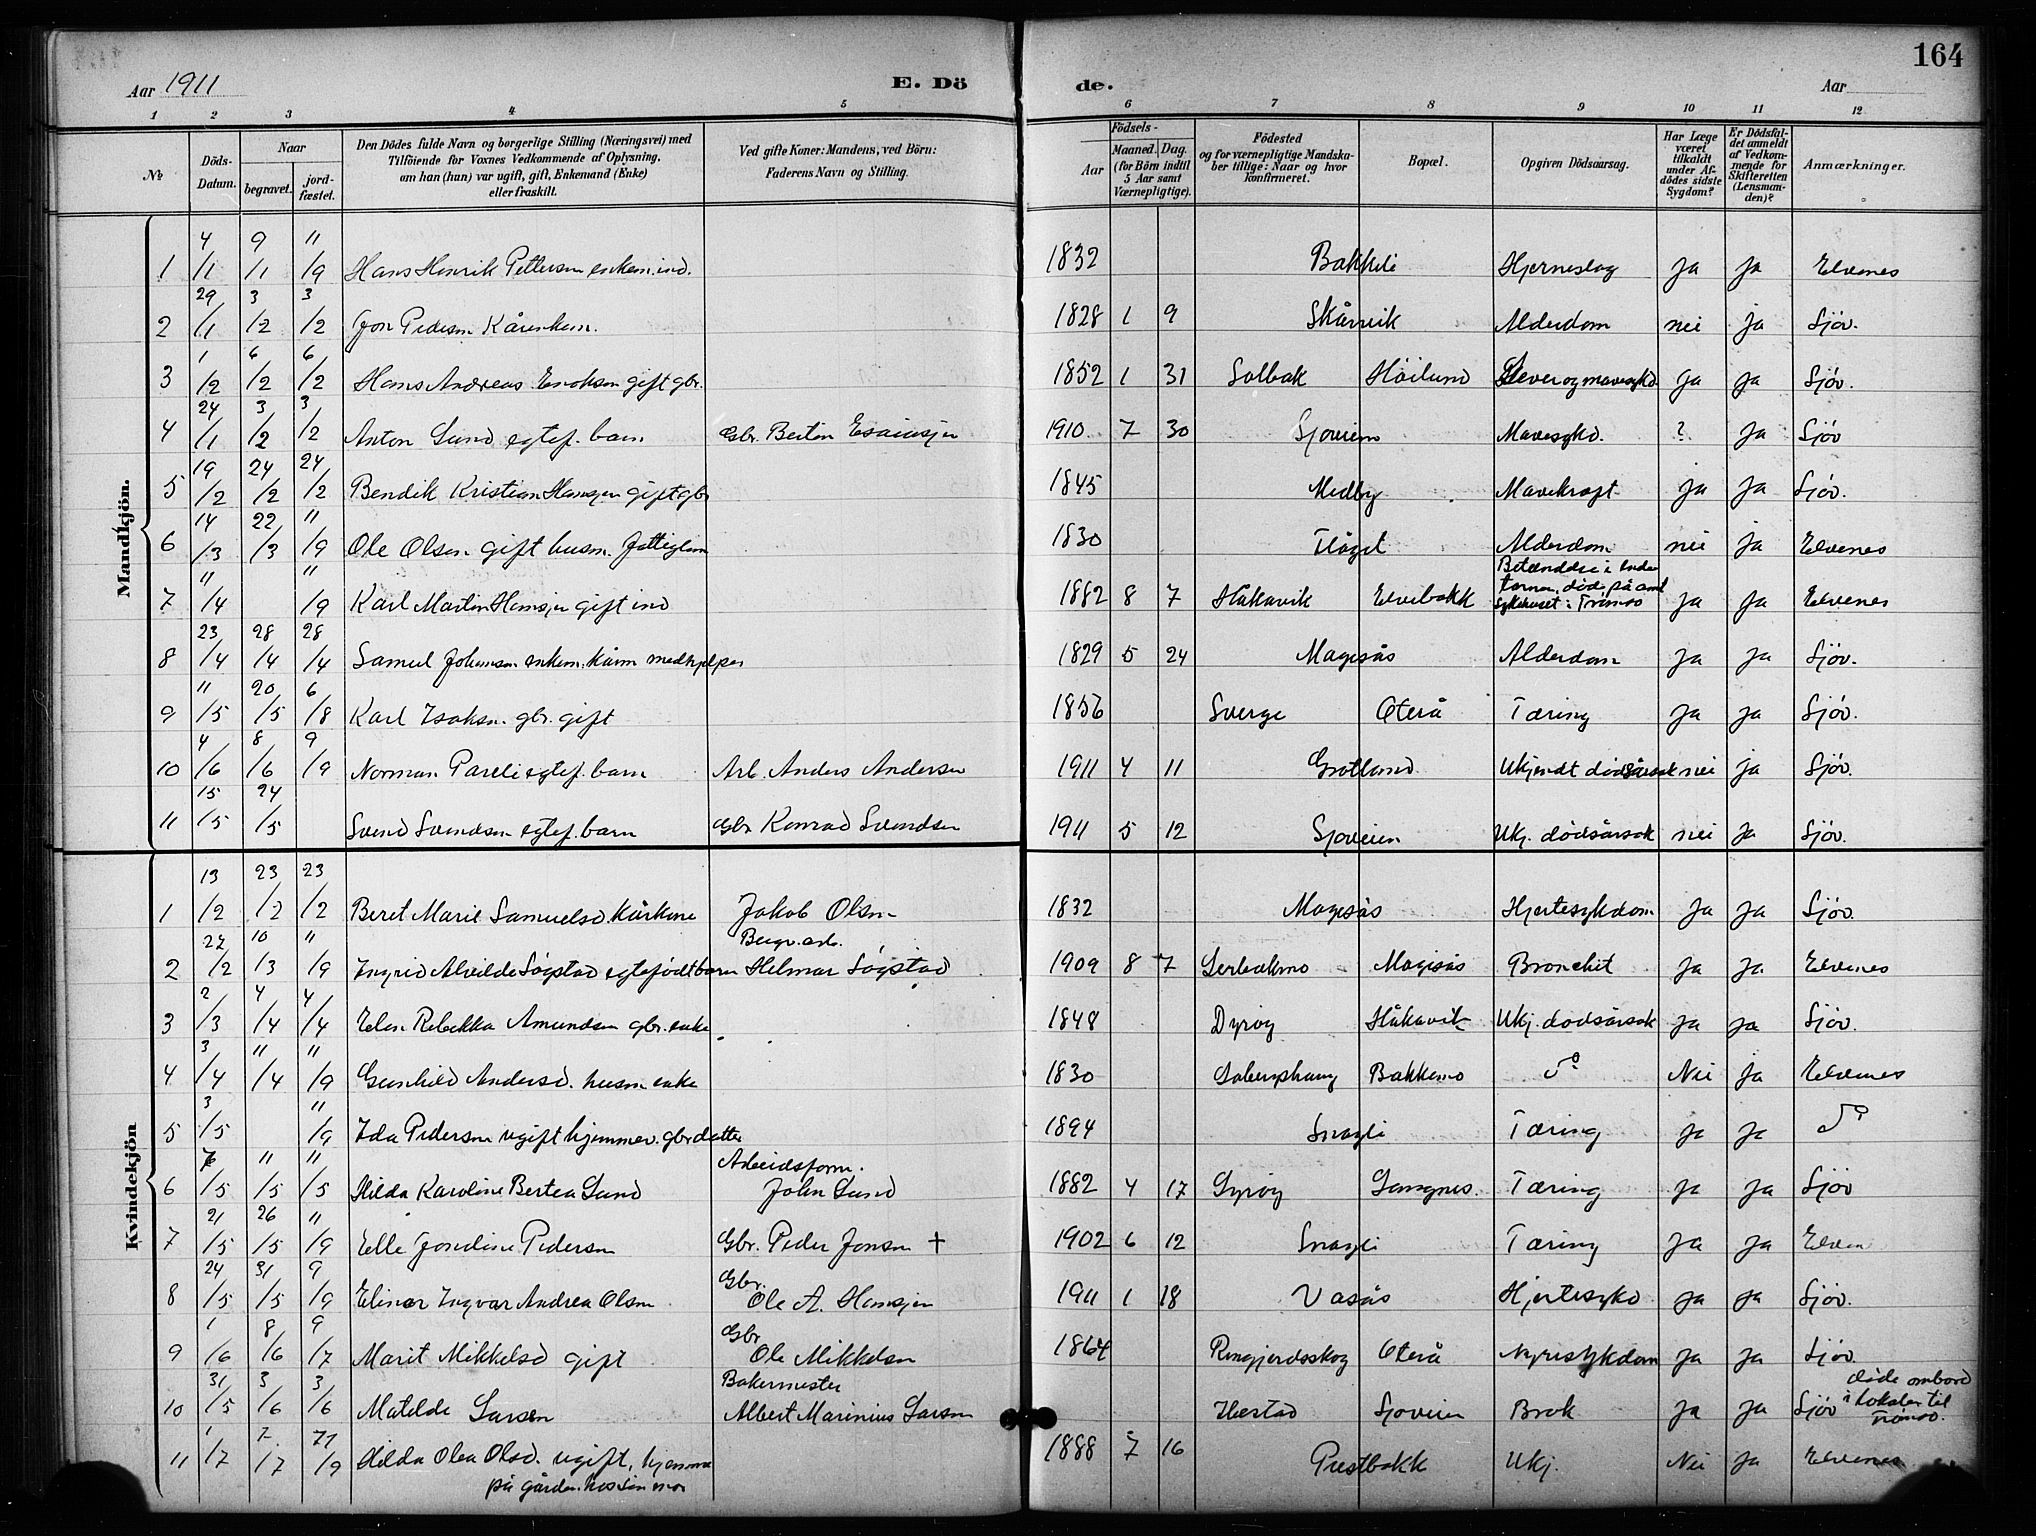 164
Aar 1911 E. Döde. Aar
1 2 3 4 5 6 7 8 9 10 11 12
№ Döds-Datum. Naar begravet. jordfæstet. Den Dödes fulde Navn og borgerlige Stilling (Næringsvei) med Tilföiende for Voxnes Vedkommende af Oplysning, om han (hun) var ugift, gift, Enkemand (Enke) eller fraskilt. Ved gifte Koner: Mandens, ved Börn: Faderens Navn og Stilling. Födsels- Aar Maaned. Dag. (for Börn indtil 5 Aar samt Værnepligtige). Födested og for værnepligtige Mandskaber tillige: Naar og hvor konfirmeret. Bopæl. Opgiven Dödsaarsag. Har Læge været tilkaldt under Afdödes sidste Sygdom? Er Dödsfaldet anmeldt af Vedkommende for Skifteretten (Lensmanden)? Anmærkninger.
Mandkjön.
1 4/1 9/1 11/9 Hans Henrik Pettersen enkem. ind. 1832 Bakkeli Hjerneslag Ja Ja Elvenes
2 29/1 3/2 3/2 Jon Pedersen Kårenkem. 1828 1 9 Skårvik Alderdom nei Ja Sjöv.
3 1/2 6/2 6/2 Hans Andreas Enoksen gift gbr. 1852 1 31 Solbak Höilund Lever og mavesykd. Ja Ja Sjöv.
4 24/1 3/2 3/2 Anton Lund egtef. barn Gbr. Berton Esaiasen 1910 7 30 Sjoveien Mavesykd. ? Ja Sjöv
5 19/2 24/2 24/2 Bendik Kristian Hansen gift gbr 1845 Medby Mavekræft Ja Ja Sjöv.
6 14/3 22/3 11/9 Ole Olsen gift husm. fattiglem 1830 Flåget Alderdom nei Ja Elvenes
7 11/4 11/9 Karl Martin Hansen gift ind 1882 8 7 Håkavik Elvebakk Betændelse i tarmen, död på amt sykehuset i Tromsö Ja Ja Elvenes
8 23/4 28/4 28/4 Samuel Johansen enkem. kårm medhjelper 1829 5 24 Magesås Alderdom Ja Ja Sjöv.
9 11/5 20/5 6/8 Karl Isaksen gbr. gift 1856 Sverge Oterå Tæring Ja Ja Sjöv.
10 4/6 8/6 9/9 Norman Pareli egtef. barn Arb. Anders Andersen 1911 4 11 Grotland Ukjendt dödsårsak nei Ja Sjöv.
11 15/5 24/5 Svend Svendsen egtef. barn Gbr Konrad Svendsen 1911 5 12 Sjoveien Ukj. dödsårsak nei Ja Sjöv.
Kvindekjön
1 13/2 23/2 23/2 Beret Marie Samuelsd. Kårkone Jakob Olsen 1832 Magesås Hjertesykdom Ja Ja Sjöv.
2 27/2 10/3 11/9 Ingrid Alvilde Sögstad egtefödt barn Bergv. arb. Helmar Sögstad 1909 8 7 Magesås Bronchit Ja Ja Elvenes
3 2/3 4/4 4/4 Elen Rebekka Amundsen gbr. enke 1848 Dyröy Håkavik Ukj. dödsårsak Ja Ja Sjöv.
4 3/4 11/4 11/9 Gunhild Andersd. husm enke 1830 Bakkemo do Nei Ja Elvenes
5 3/5 11/9 Ida Pedersen ugift hjemmev. gbr datter 1894 Snagli Tæring Ja Ja do
6 7/5 11/5 11/5 Hilda Karoline Bertea Lund Arbeidsform. John Lund 1882 4 17 Dyröy Tæring Ja Ja Sjöv
7 21/5 26/5 11/9 Elle Jondine Pedersen Gbr. Peder Jonsen † 1902 6 12 Snagli Tæring Ja Ja Elven
8 24/5 31/5 9/9 Elinor Ingvar Andrea Olsen Gbr. Ole A. Hansen 1911 1 18 Vasås Hjertesykd Ja Ja Sjöv.
9 1/6 8/6 9/7 Marit Mikkelsd gift Gbr Ole Mikkelsen 1864 Oterå Nyresykdom Ja Ja Sjöv.
10 31/5 3/6 3/6 Matilde Larsen Bakermester Albert Marinius Larsen Ibestad Sjoveien Brok Ja Ja Sjöv döde ombord i lokalen til Tromsö.
11 1/7 7/7 /9 Hilda Olea Olsd. ugift, hjemme på gården hos sin mor 1888 7 16 Prestbakk Ukj. Nei Ja Elvenes